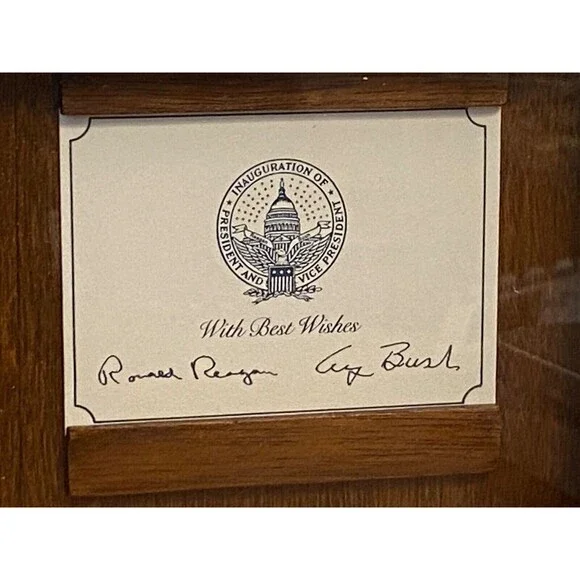 INAUGURATION OF
PRESIDENT AND VICE PRESIDENT
With Best Wishes
Ronald Reagan
Bush